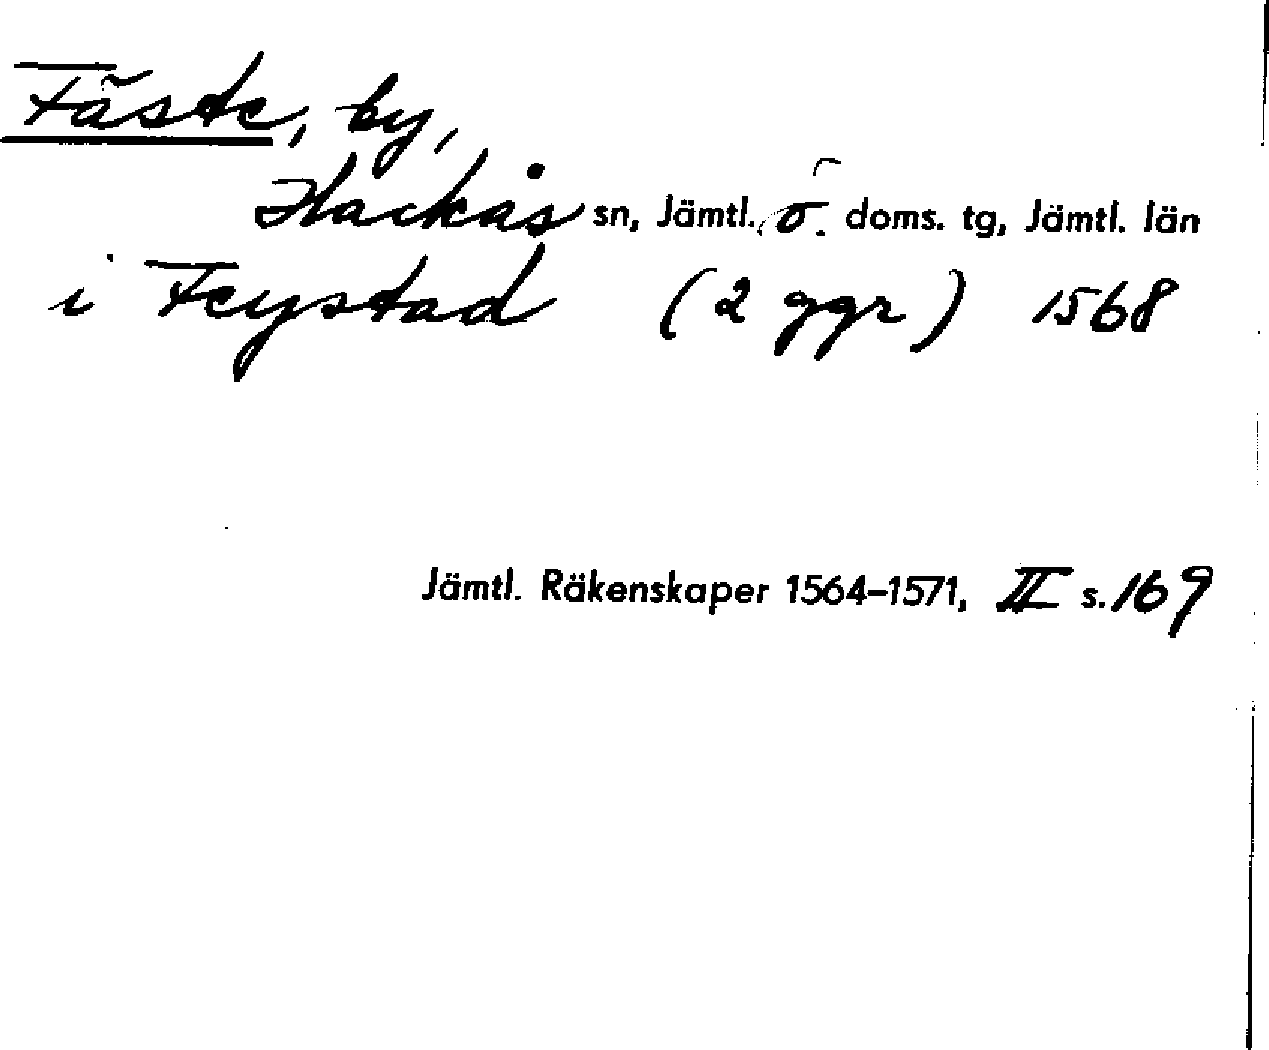 Fäste, by,
Hackås sn, Jämtl. ö. doms. tg, Jämtl. län
i Feystad (2 ggr) 1568
Jämtl. Räkenskaper 1564–1571, II s. 169